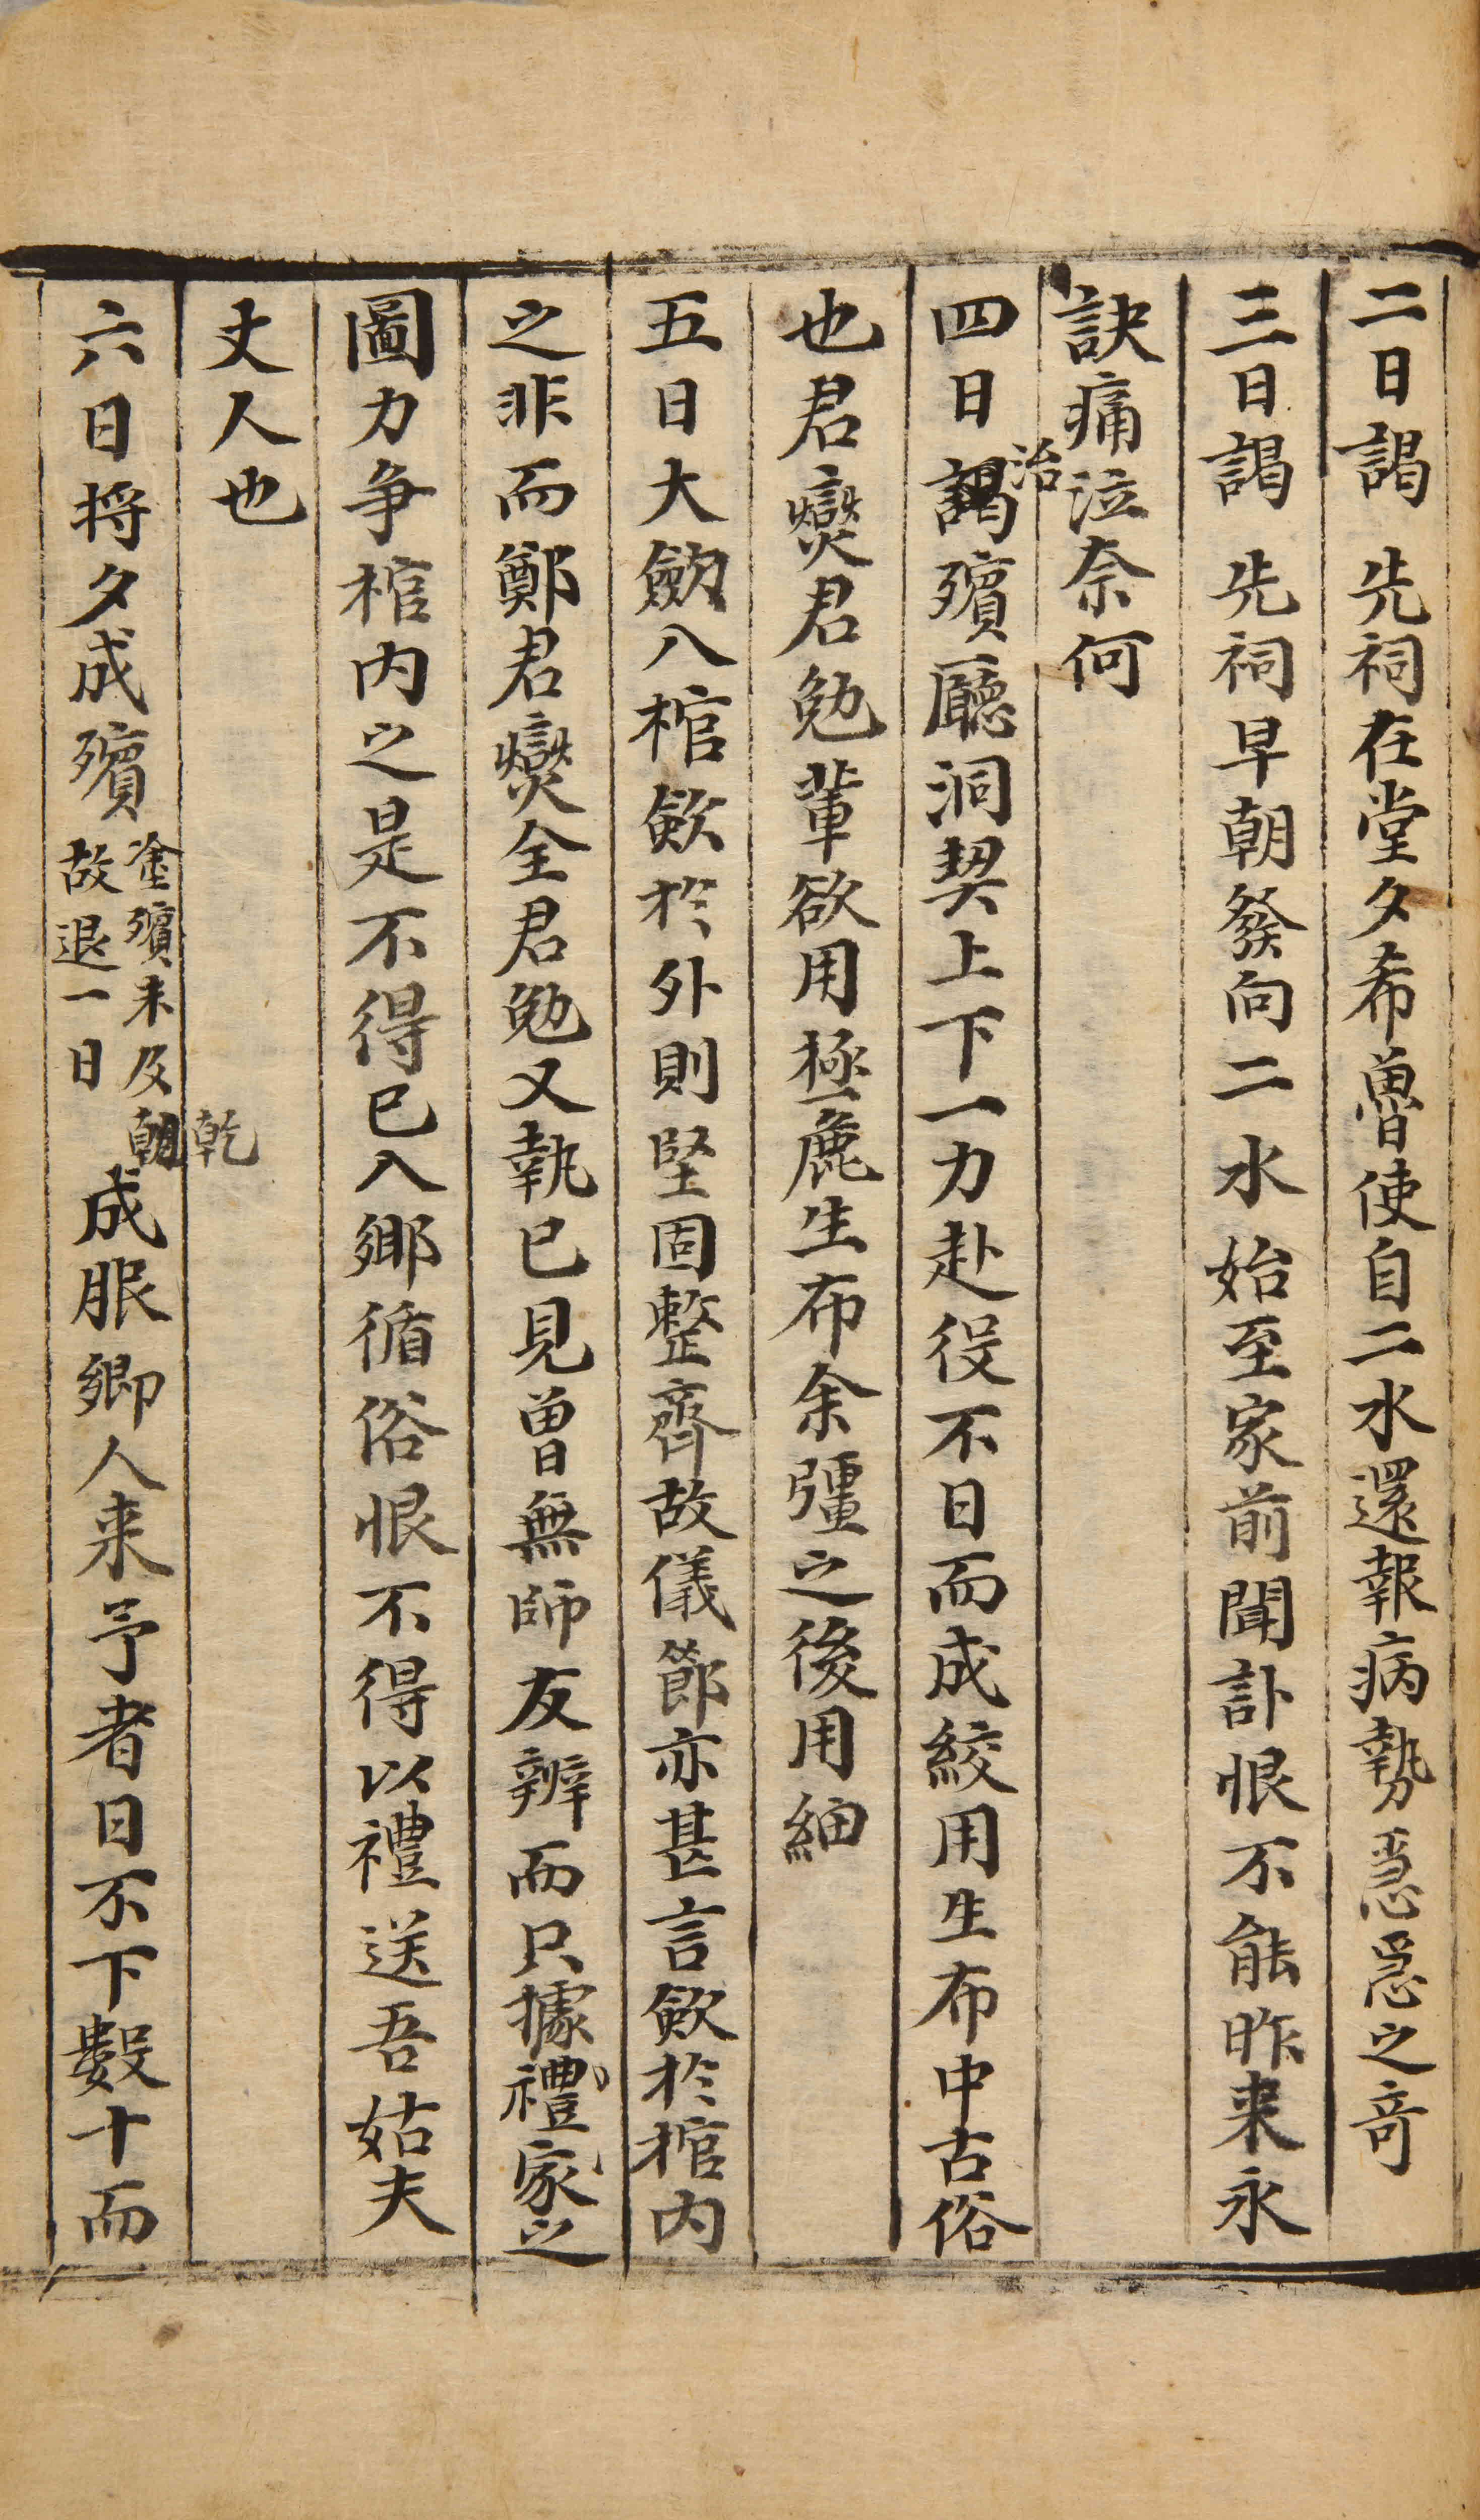 二日謁　先祠在堂夕希魯使自二水還報病勢急急之奇
三日謁　先祠早朝發向二水始至家前聞訃恨不能昨来永
訣痛泣奈何
四日謁治殯廳洞契上下一力赴役不日而成絞用生布中古俗
也君爕君勉輩欲用極麁生布余彊之後用細
五日大斂入棺斂於外則堅固整齊故儀節亦甚言斂於棺内
之非而鄭君爕全君勉又執已見曽無師友辨而只據禮家之
圖力争棺内之是不得已入鄉循俗恨不得以禮送吾姑夫
丈人也
六日将夕成殯塗殯未及乾故退一日成服鄉人来予者日不下數十而